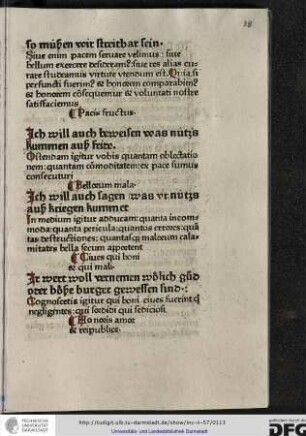 28
so müßen wir streithar sein.
Siue enim pacem seruare velimus: siue
bellum exercere desideram? siue res alias cu-
rare studeamus virtute vtendum est. Quia si
perfuncti fuerim? & honorem comparabim?
& honorem consequemur & voluntati nostre
satisfaciemus
¶ Pacis fructus.
Ich will auch beweisen was nutzs
kummen auß fride.
Ostendam igitur vobis quantam oblectatio
nem: quantam commoditatem ex pace sumus
consecuturi
¶ Bellorum mala.
Ich will auch sagen was vr nutzs
auß kriegen kummet
In medium igitur adducam: quanta incom-
moda: quanta pericula: quantus errores: quā
tas destructiones: quantasq; malorum cala-
mitates bella secum apportent
¶ Ciues qui boni
& qui mali.
Ir wert woll vernemen wölich gůd
oder böße burger gewessen sind.:
Cognoscetis igitur qui boni ciues fuerint q
negligentes: qui sordidi qui sediciosi
¶ Ho noris amor
& reipublice.
TECHNISCHE
UNIVERSITÄT
DARMSTADT
http://tudigit.ulb.tu-darmstadt.de/show/inc-ii-57/0113
Universitäts- und Landesbibliothek Darmstadt
gefördert durch die
DFG